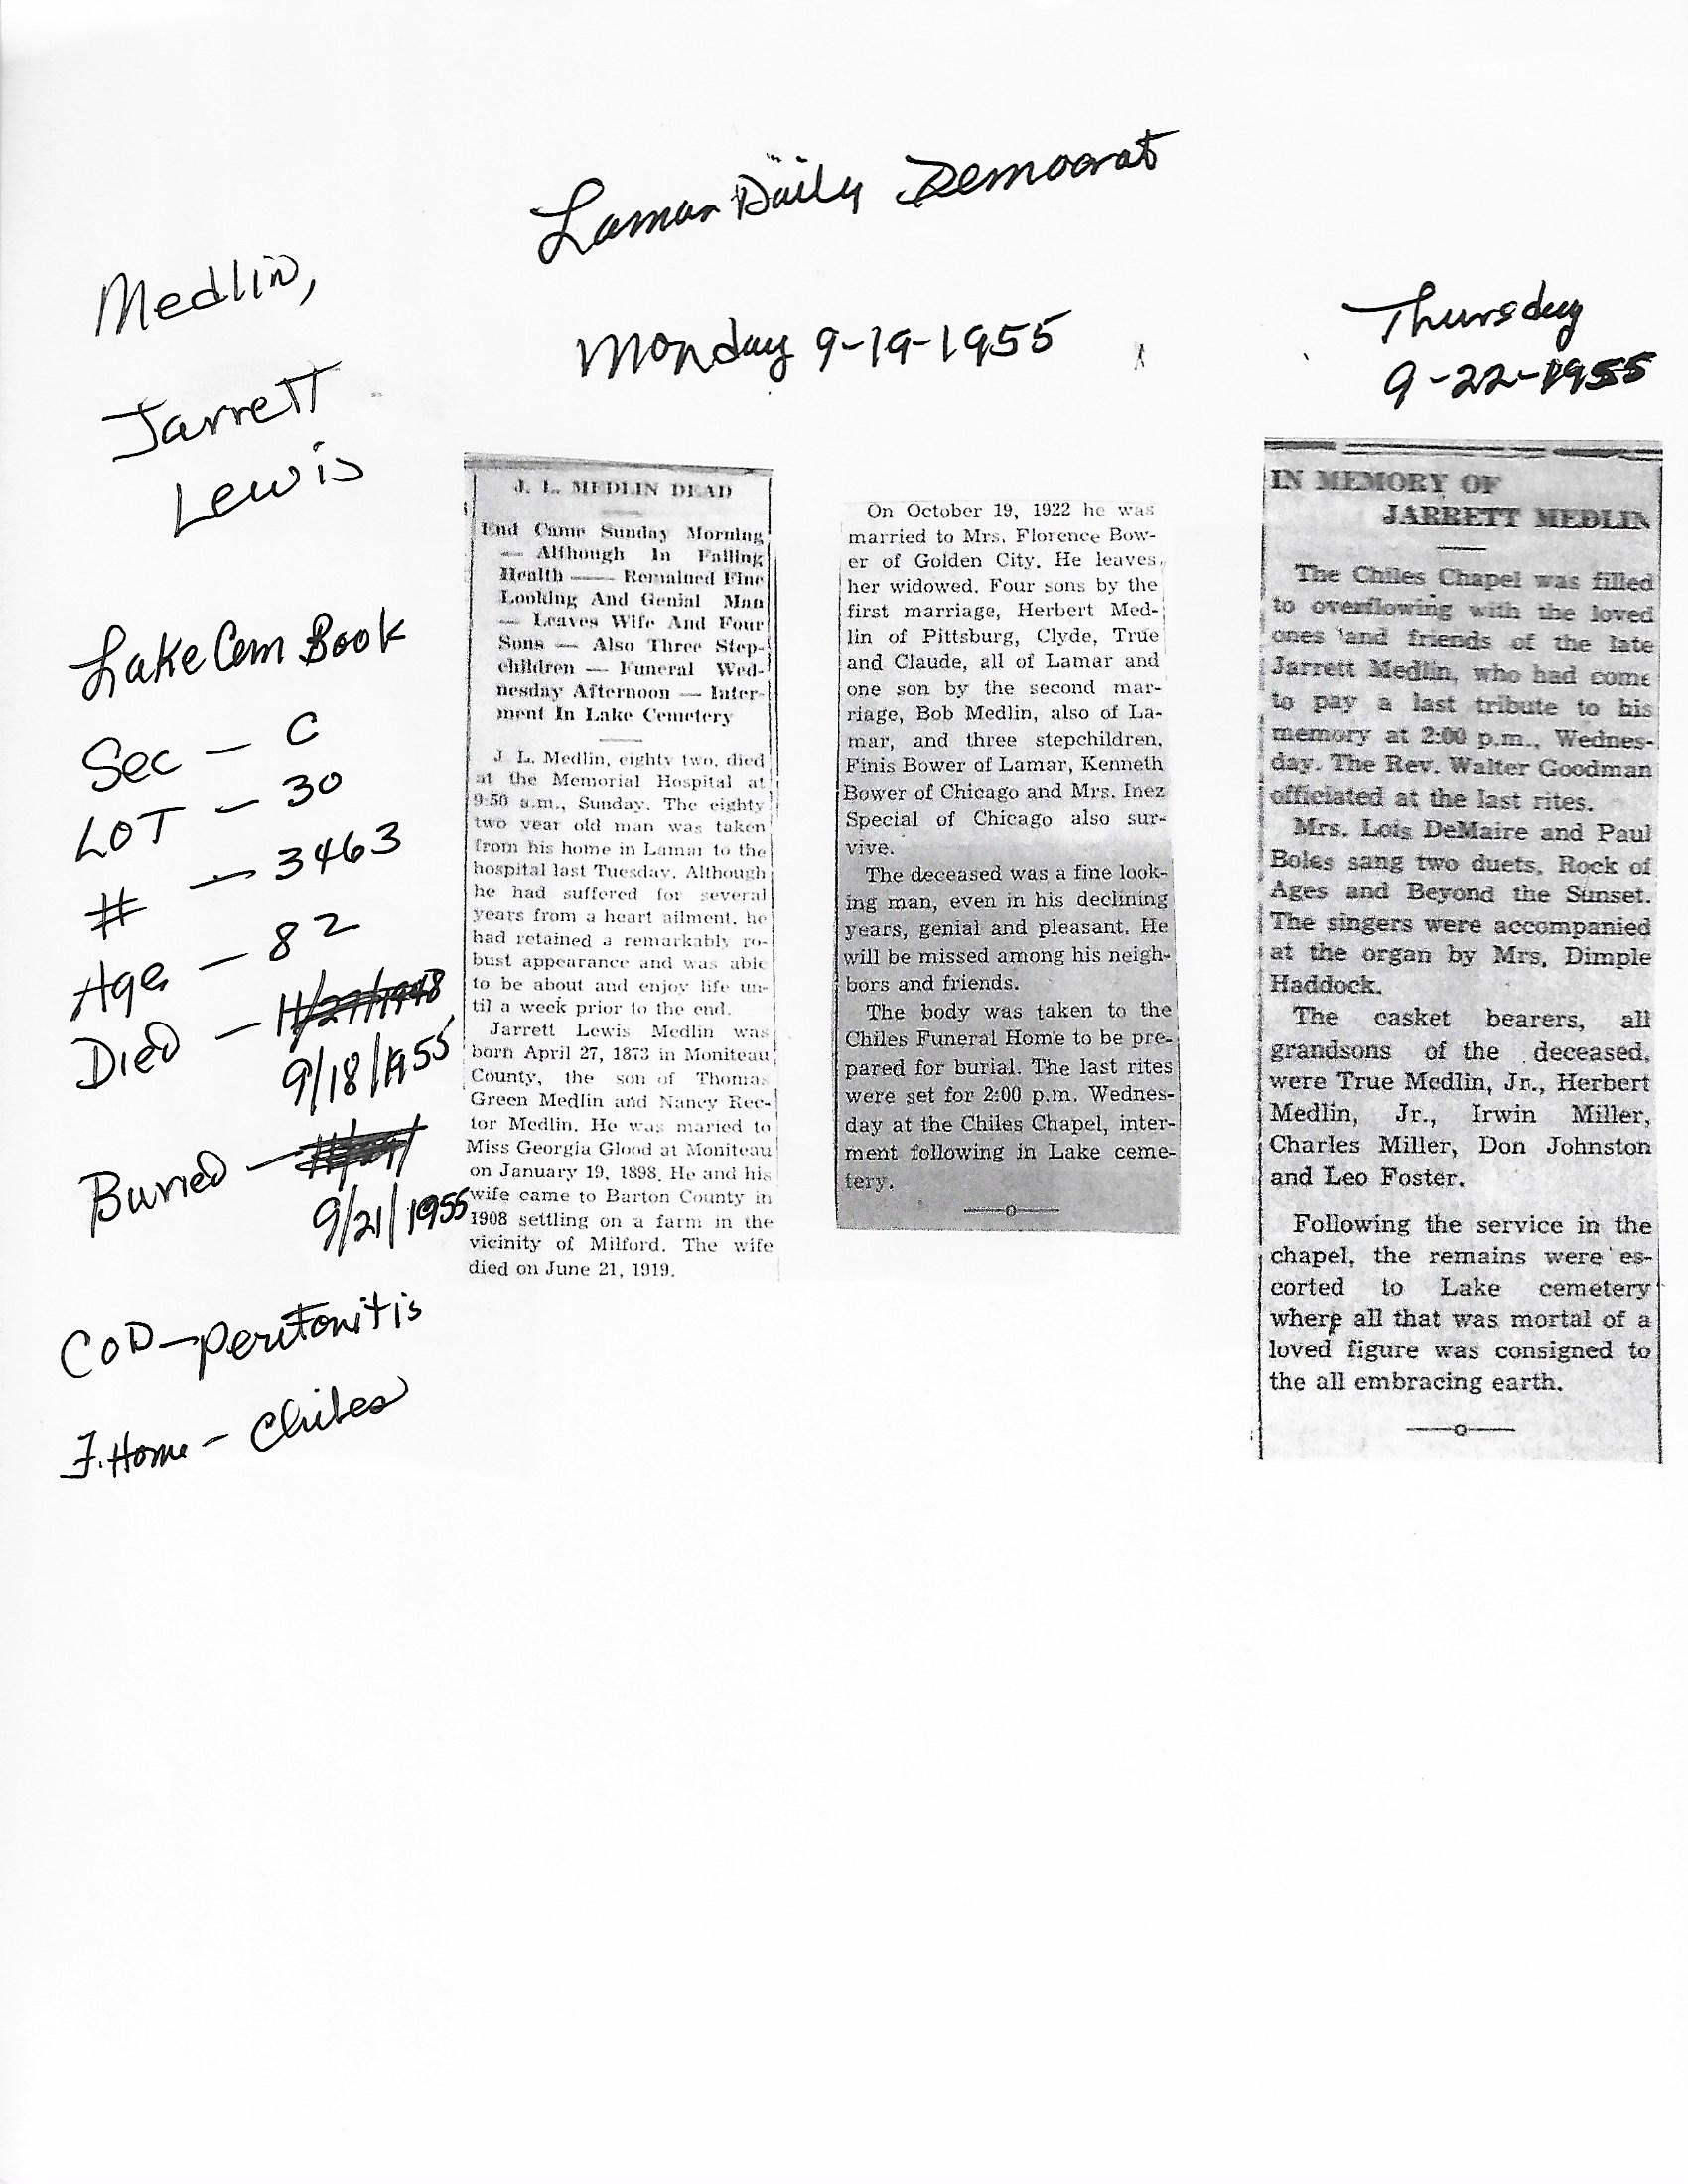 Lamar Daily Democrat
Medlin,
Jarrett
Lewis
Monday 9-19-1955
Thursday
9-22-1955
Lake Cem Book
Sec - C
LOT - 30
# - 3463
Age - 82
Died - 11/27/1948
9/18/1955
Buried -
9/21/1955
COD - peritonitis
F. Home - Chiles
J. L. MEDLIN DEAD
End Came Sunday Morning
— Although In Failing
Health —— Remained Fine
Looking And Genial Man
— Leaves Wife And Four
Sons — Also Three Step-
children — Funeral Wed-
nesday Afternoon — Inter-
ment In Lake Cemetery
J. L. Medlin, eighty two, died
at the Memorial Hospital at
9:50 a.m., Sunday. The eighty
two year old man was taken
from his home in Lamar to the
hospital last Tuesday. Although
he had suffered for several
years from a heart ailment, he
had retained a remarkably ro-
bust appearance and was able
to be about and enjoy life un-
til a week prior to the end.
Jarrett Lewis Medlin was
born April 27, 1873 in Moniteau
County, the son of Thomas
Green Medlin and Nancy Rec-
tor Medlin. He was maried to
Miss Georgia Glood at Moniteau
on January 19, 1898. He and his
wife came to Barton County in
1908 settling on a farm in the
vicinity of Milford. The wife
died on June 21, 1919.
On October 19, 1922 he was
married to Mrs. Florence Bow-
er of Golden City. He leaves
her widowed. Four sons by the
first marriage, Herbert Med-
lin of Pittsburg, Clyde, True
and Claude, all of Lamar and
one son by the second mar-
riage, Bob Medlin, also of La-
mar, and three stepchildren,
Finis Bower of Lamar, Kenneth
Bower of Chicago and Mrs. Inez
Special of Chicago also sur-
vive.
The deceased was a fine look-
ing man, even in his declining
years, genial and pleasant. He
will be missed among his neigh-
bors and friends.
The body was taken to the
Chiles Funeral Home to be pre-
pared for burial. The last rites
were set for 2:00 p.m. Wednes-
day at the Chiles Chapel, inter-
ment following in Lake ceme-
tery.
IN MEMORY OF
JARRETT MEDLIN
The Chiles Chapel was filled
to overflowing with the loved
ones and friends of the late
Jarrett Medlin, who had come
to pay a last tribute to his
memory at 2:00 p.m., Wednes-
day. The Rev. Walter Goodman
officiated at the last rites.
Mrs. Lois DeMaire and Paul
Boles sang two duets, Rock of
Ages and Beyond the Sunset.
The singers were accompanied
at the organ by Mrs. Dimple
Haddock.
The casket bearers, all
grandsons of the deceased,
were True Medlin, Jr., Herbert
Medlin, Jr., Irwin Miller,
Charles Miller, Don Johnston
and Leo Foster.
Following the service in the
chapel, the remains were es-
corted to Lake cemetery
where all that was mortal of a
loved figure was consigned to
the all embracing earth.